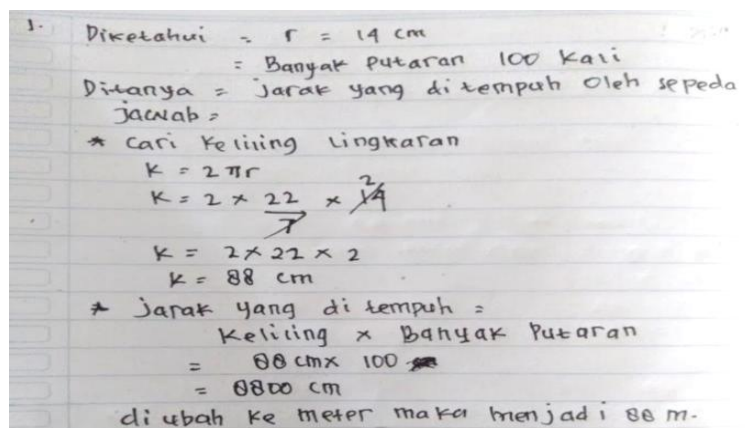 1. Diketahui = r = 14 cm
= Banyak Putaran 100 kali
Ditanya = Jarak yang di tempuh oleh sepeda
jawab =
* Cari Keliling Lingkaran
K = 2πr
K = 2 × 22/7 × 14 2
K = 2 × 22 × 2
K = 88 cm
* Jarak yang di tempuh =
Keliling × Banyak Putaran
= 88 cm × 100
= 8800 cm
di ubah ke meter maka menjadi 88 m.